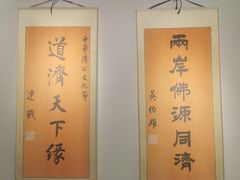 兩岸佛源同濟
吳伯雄
中華濟公文化節
道濟天下緣
連戰